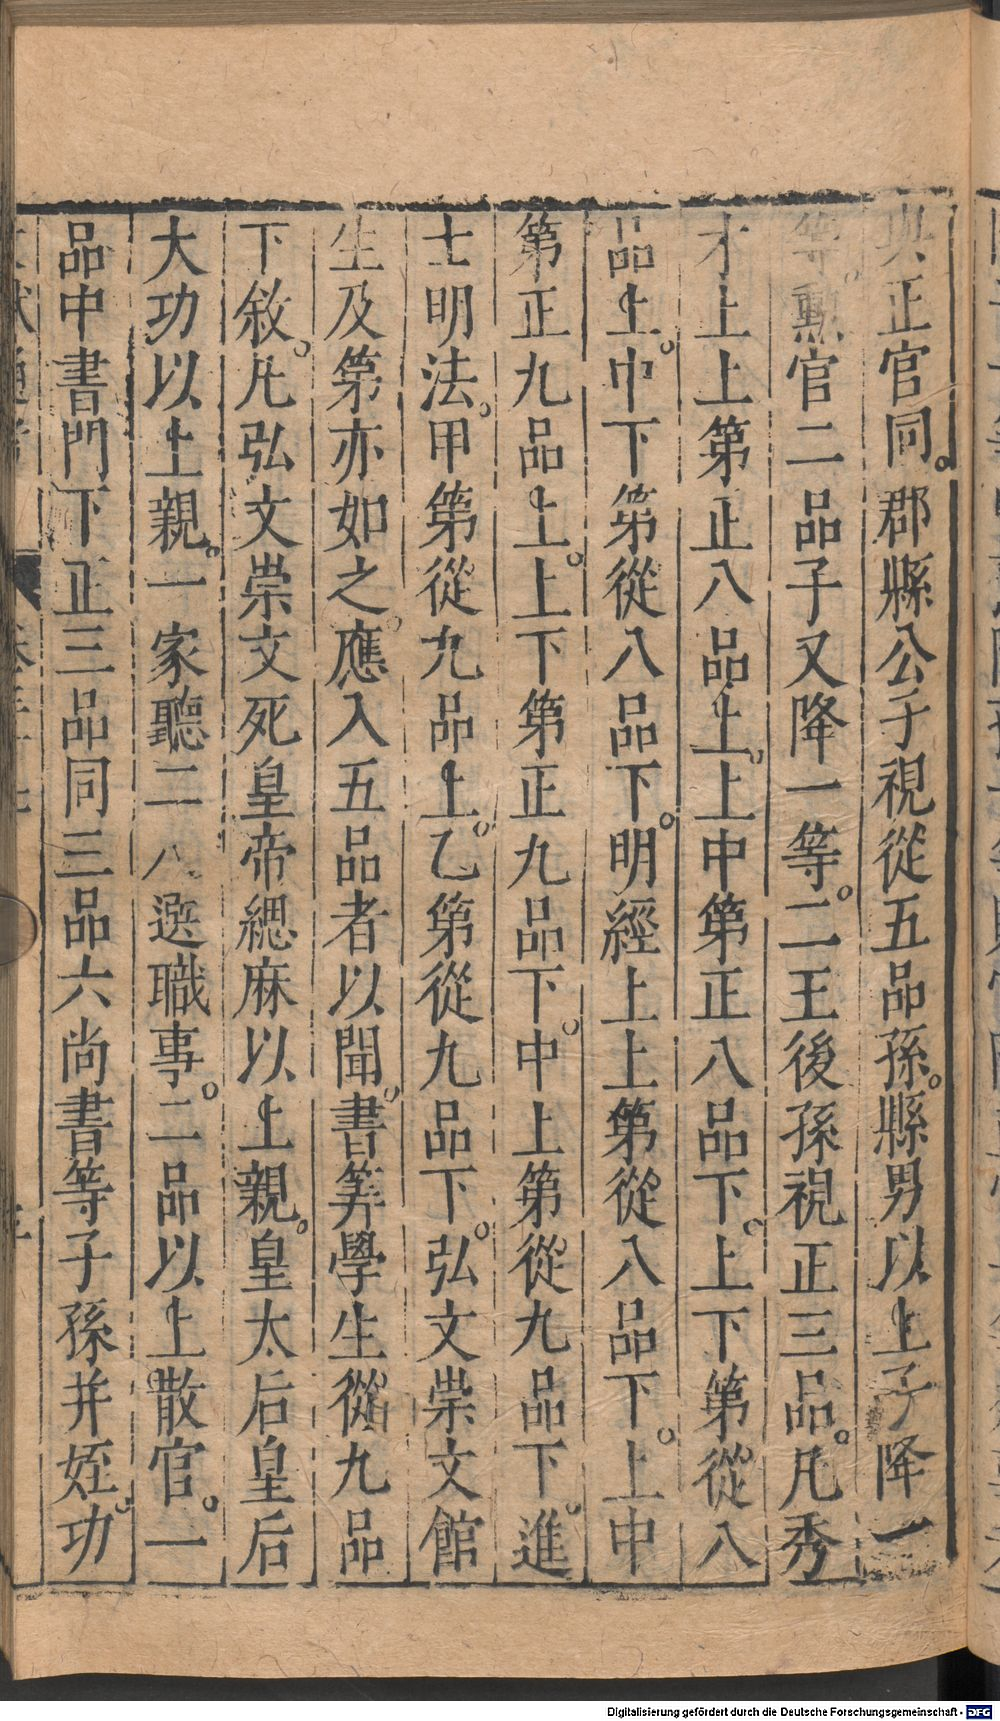 與正官同。郡縣公子視從五品孫。縣男以上子降一
等。勲官二品子又降一等。二王後孫視正三品。凡秀
才上上第正八品上。上中第正八品下。上下第從八
品上。中下第從八品下。明經上上第從八品下。上中
第正九品上。上下第正九品下。中上第從九品下。進
士明法。甲第從九品上。乙第從九品下。弘文崇文館
生及第亦如之。應入五品者以聞。書筭學生從九品
下敘。凡弘文崇文死皇帝緦麻以上親。皇太后皇后
大功以上親。一家聽二人選職事。二品以上散官。一
品中書門下正三品同三品六尚書等子孫并姪。功
Digitalisierung gefördert durch die Deutsche Forschungsgemeinschaft - DFG